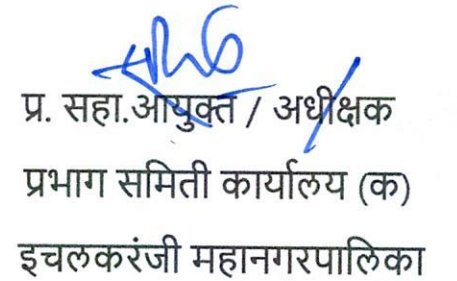 प्र. सहा.आयुक्त / अधीक्षक
प्रभाग समिती कार्यालय (क)
इचलकरंजी महानगरपालिका